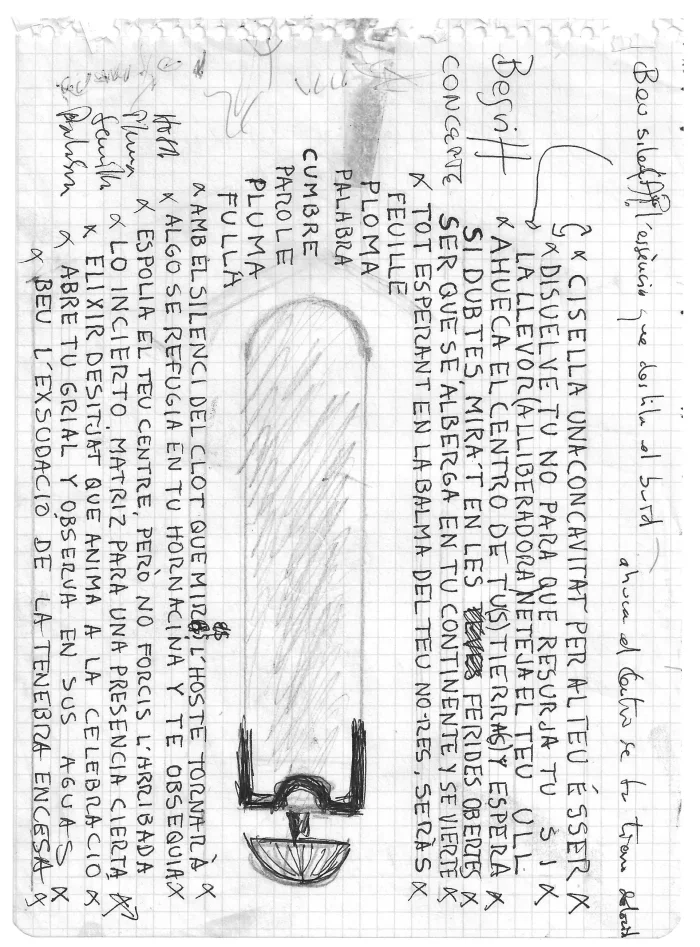 Beu l'essència que destila el buid
ahueca el centro de tu tierra
CISELLA UNA CONCAVITAT PER AL TEU ÉSSER
DISUELVE TU NO PARA QUE RESURJA TU SI
LA LLEVOR (ALLIBERADORA) NETEJA EL TEU ULL
Begriff
AHUECA EL CENTRO DE TU(S) TIERRA(S) Y ESPERA
SI DUBTES, MIRA'T EN LES FERIDES OBERTES
CONCEPTE
SER QUE SE ALBERGA EN TU CONTINENTE Y SE VIERTE
TOT ESPERANT EN LA BALMA DEL TEU NO-RES, SERÀS
FEUILLE
PLOMA
PALABRA
CUMBRE
PAROLE
PLUMA
FULLA
AMB EL SILENCI DEL CLOT QUE MIRES, L'HOSTE TORNARÀ
Hoja
ALGO SE REFUGIA EN TU HORNACINA Y TE OBSEQUIA
Pluma
ESPOLIA EL TEU CENTRE, PERÒ NO FORCIS L'ARRIBADA
Semilla
LO INCIERTO, MATRIZ PARA UNA PRESENCIA CIERTA
Palabra
ELIXIR DESITJAT QUE ANIMA A LA CELEBRACIÓ
ABRE TU GRIAL Y OBSERVA EN SUS AGUAS
BEU L'EXSUDACIÓ DE LA TENEBRA ENCESA